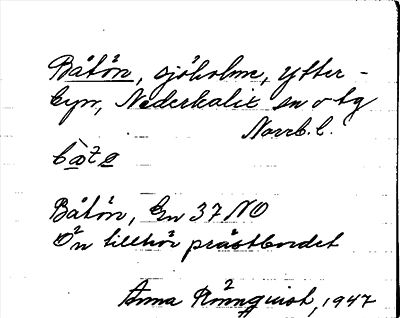 Båtön, sjöholme, Ytter-
byn, Nederkalix sn o tg
Norrb. l.
Båtön, Ek 37 NO
Ön tillhör prästbordet
Anna Rönnquist, 1947